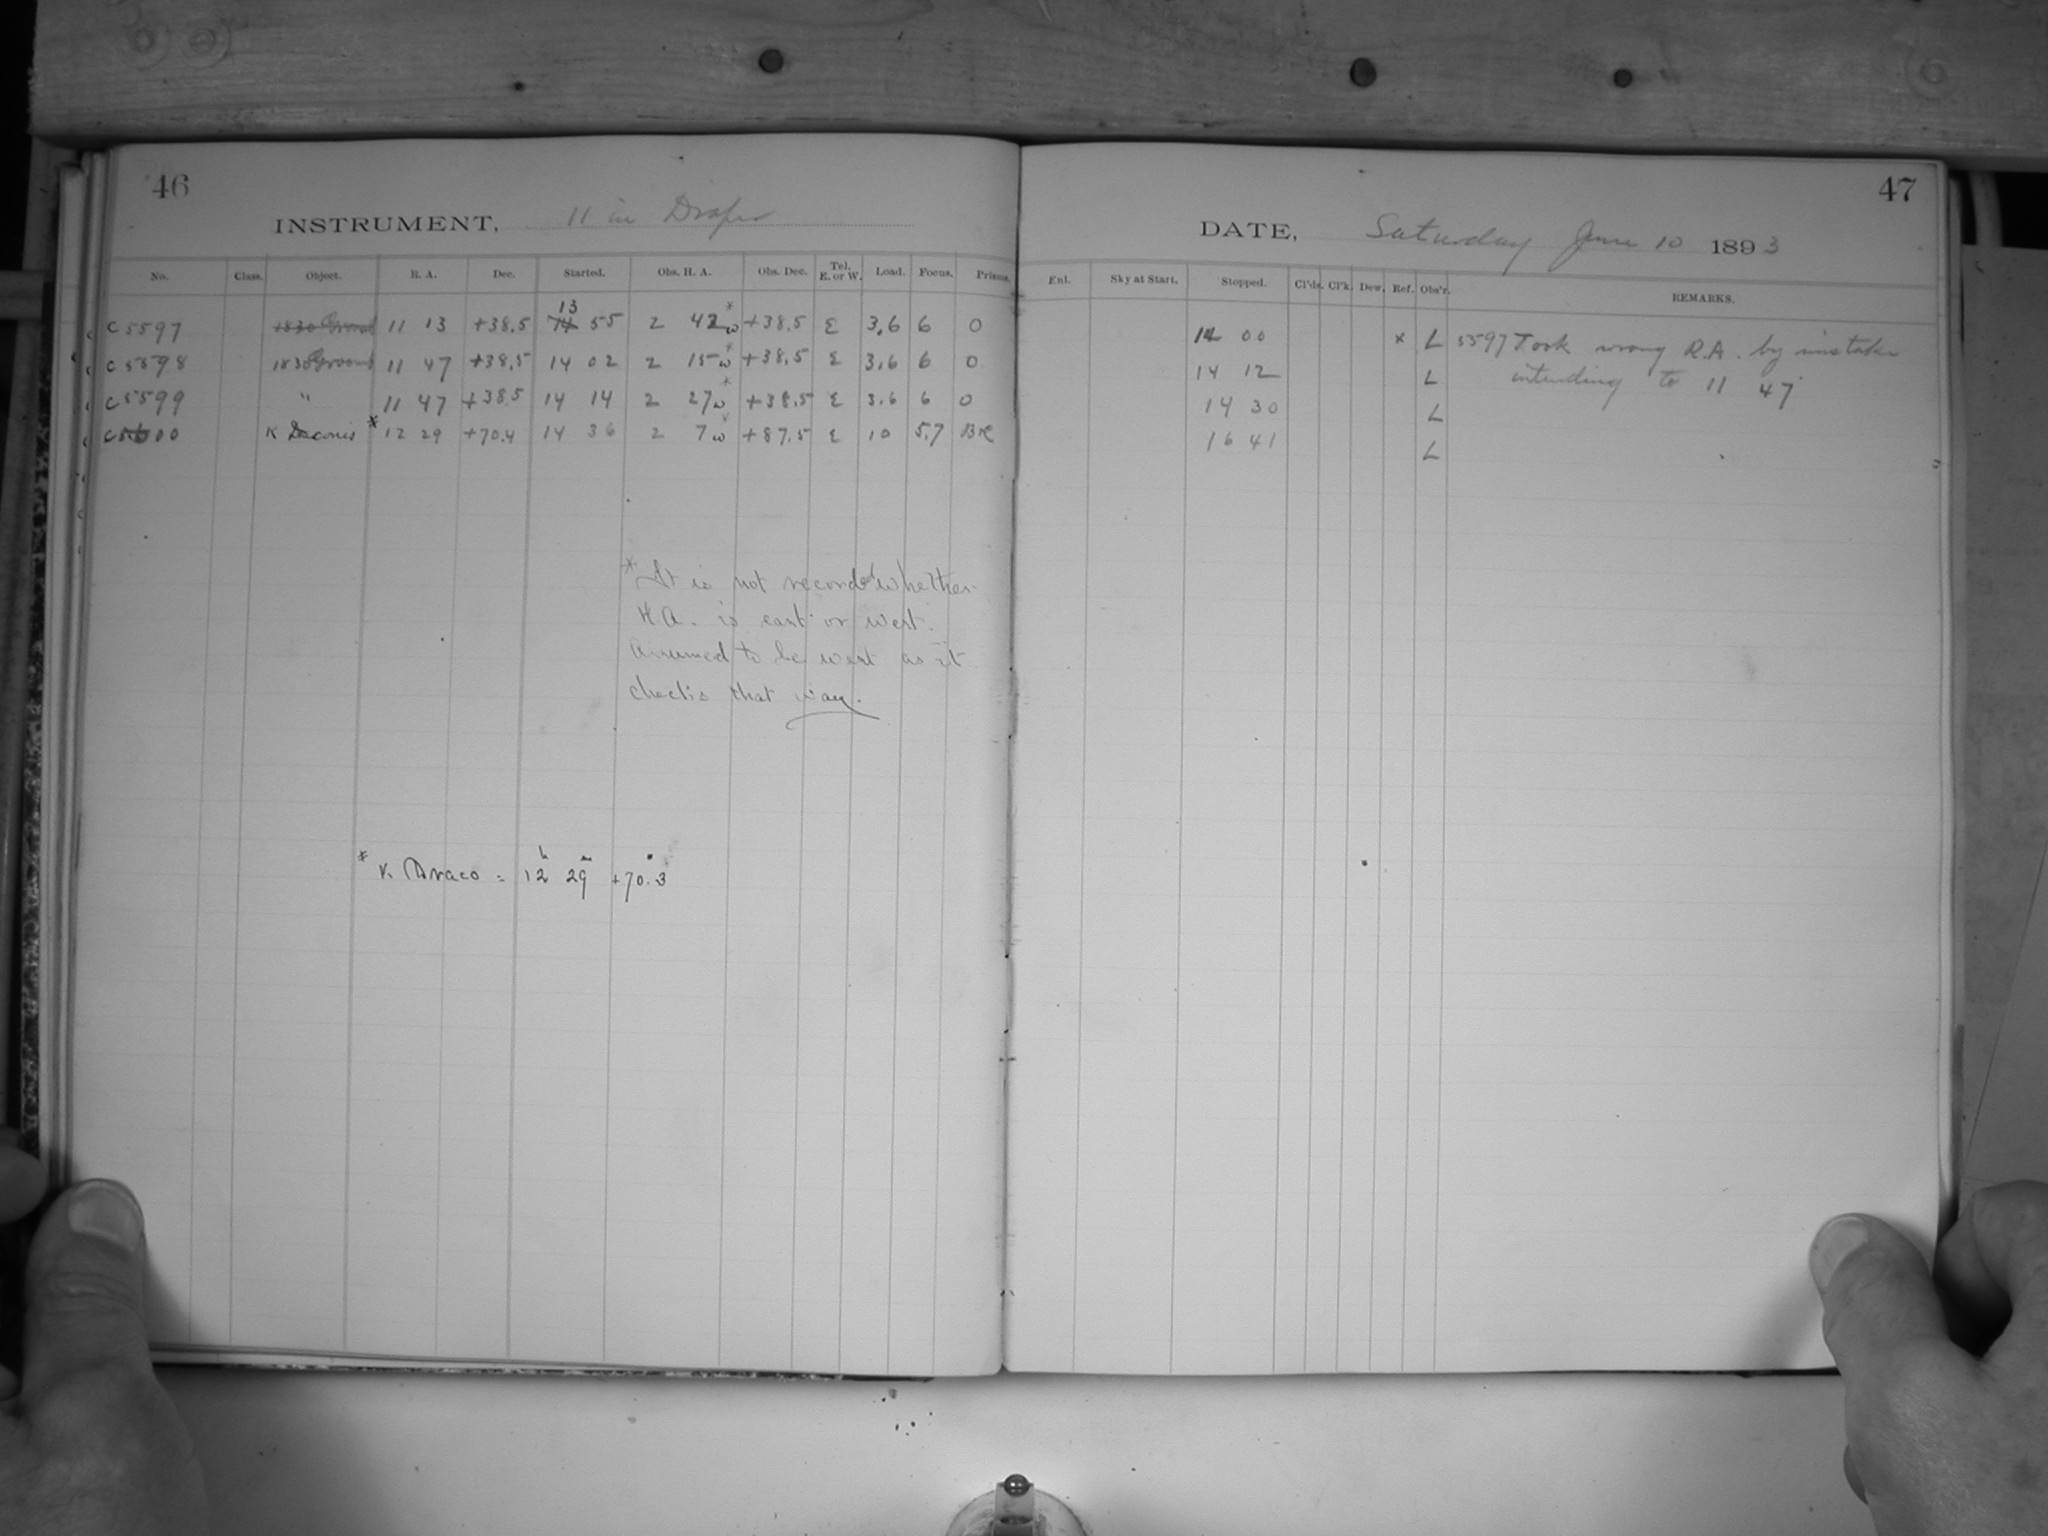 46
INSTRUMENT, 11 in Draper
No. Class. Object. R. A. Dec. Started. Obs. H. A. Obs. Dec. Tel. E. or W. Load. Focus. Prisms.
C5597 1830 Groom 11 13 +38.5 14 13 55 2 42w* +38.5 E 3.6 6 0
C5598 1830 Groom 11 47 +38.5 14 02 2 15w* +38.5 E 3.6 6 0
C5599 " 11 47 +38.5 14 14 2 27w* +38.5 E 3.6 6 0
C5600 K Draconis * 12 29 +70.4 14 36 2 7w* +87.5 E 10 5.7 BK
* It is not recorded whether
H.A. is east or west.
Assumed to be west as it
checks that way.
* K Draco = 12h 29m +70°.3
47
DATE, Saturday June 10 1893
Enl. Sky at Start. Stopped. Cl'ds. Cl'k. Dew. Ref. Obs'r. REMARKS.
14 00 x L 5597 Took wrong R.A. by mistake
14 12 L intending to 11 47
14 30 L
16 41 L